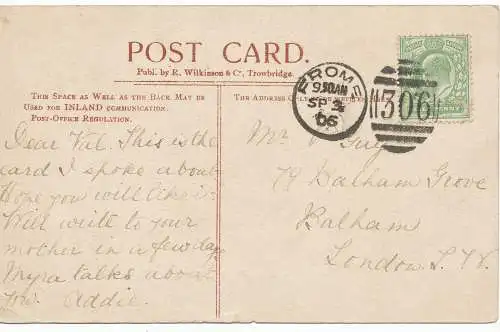 POST CARD.
Publ. by R. Wilkinson & Co, Trowbridge.
THIS SPACE AS WELL AS THE BACK MAY BE
USED FOR INLAND COMMUNICATION.
POST-OFFICE REGULATION.
THE ADDRESS ONLY
FROME
9.30AM
SP 3
06
306
Dear Val. This is the
card I spoke about
Hope you will like it
Will write to your
mother in a few days
Myra talks about
you. Addie.
Mr V Guy
79 Balham Grove
Balham
London S.W.